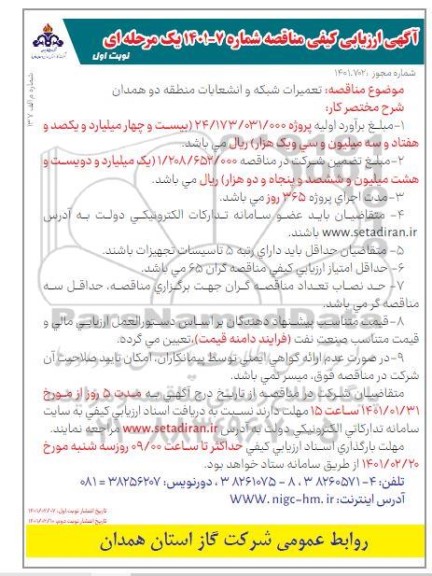 آگهی ارزیابی کیفی مناقصه شماره ۷-۱۴۰۱ یک مرحله ای
نوبت اول
شماره مجوز :۱۴۰۱.۷۰۲
موضوع مناقصه: تعمیرات شبکه و انشعابات منطقه دو همدان
شرح مختصر کار:
۱-مبلغ برآورد اولیه پروژه ۲۴/۱۷۳/۰۳۱/۰۰۰ (بیست و چهار میلیارد و یکصد و
هفتاد و سه میلیون و سی ویک هزار) ریال می باشد.
۲-مبلغ تضمین شرکت در مناقصه ۱/۲۰۸/۶۵۲/۰۰۰ (یک میلیارد و دویست و
هشت میلیون و ششصد و پنجاه و دو هزار) ریال می باشد.
۳-مدت اجرای پروژه ۳۶۵ روز می باشد.
۴- متقاضیان باید عضو سامانه تدارکات الکترونیکی دولت به آدرس
www.setadiran.ir باشند.
۵- متقاضیان حداقل باید دارای رتبه ۵ تاسیسات تجهیزات باشند.
۶- حداقل امتیاز ارزیابی کیفی مناقصه گران ۶۵ می باشد.
۷- حد نصاب تعداد مناقصه گران جهت برگزاری مناقصه، حداقل سه
مناقصه گر می باشد.
۸- قیمت متناسب پیشنهاد دهندگان بر اساس دستورالعمل ارزیابی مالی و
قیمت متناسب صنعت نفت (فرایند دامنه قیمت)،تعیین می گردد.
۹-در صورت عدم ارائه گواهی ایمنی توسط پیمانکاران، امکان تایید صلاحیت آن
شرکت در مناقصه فوق، میسر نمی باشد.
متقاضیان شرکت در مناقصه از تاریخ درج آگهی به مدت ۵ روز از مورخ
۱۴۰۱/۰۱/۳۱ ساعت ۱۵ مهلت دارند نسبت به دریافت اسناد ارزیابی کیفی به سایت
سامانه تدارکاتی الکترونیکی دولت به آدرس www.setadiran.ir مراجعه نمایند.
مهلت بارگذاری اسناد ارزیابی کیفی حداکثر تا ساعت ۰۹/۰۰ روزسه شنبه مورخ
۱۴۰۱/۰۲/۲۰ از طریق سامانه ستاد خواهد بود.
تلفن: ۴-۳۸۲۶۰۵۷۱ ، ۸-۳۸۲۶۱۰۷۵ ، دورنویس: ۳۸۲۵۶۲۰۷-۰۸۱
آدرس اینترنت: WWW.nigc-hm.ir
روابط عمومی شرکت گاز استان همدان